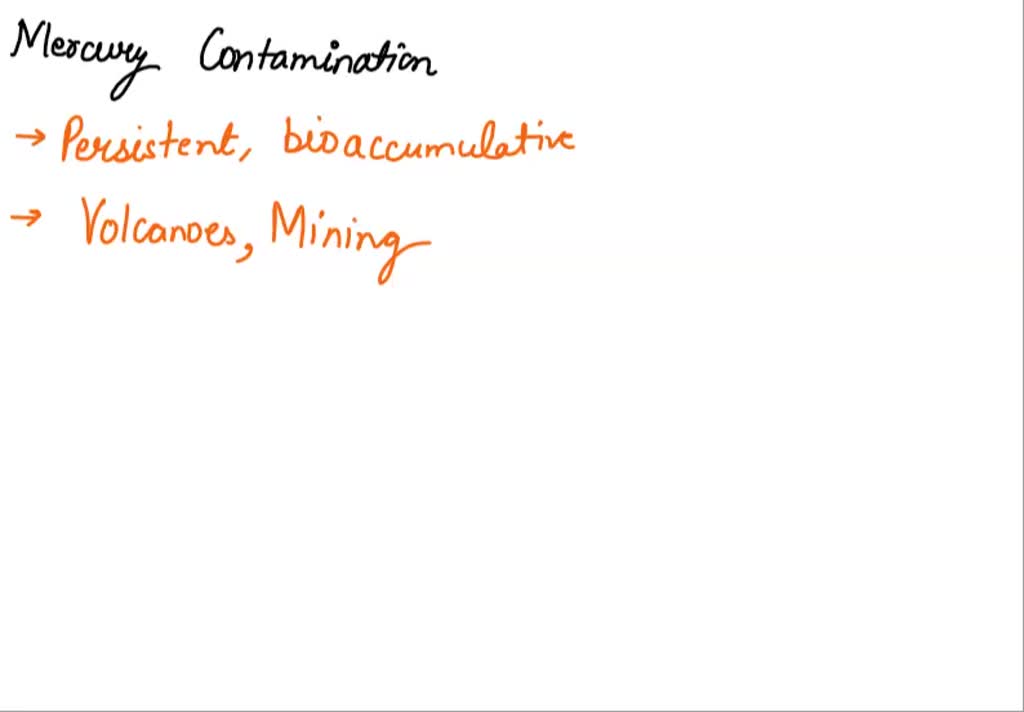 Mercury Contamination
→ Persistent, bioaccumulative
→ Volcanoes, Mining